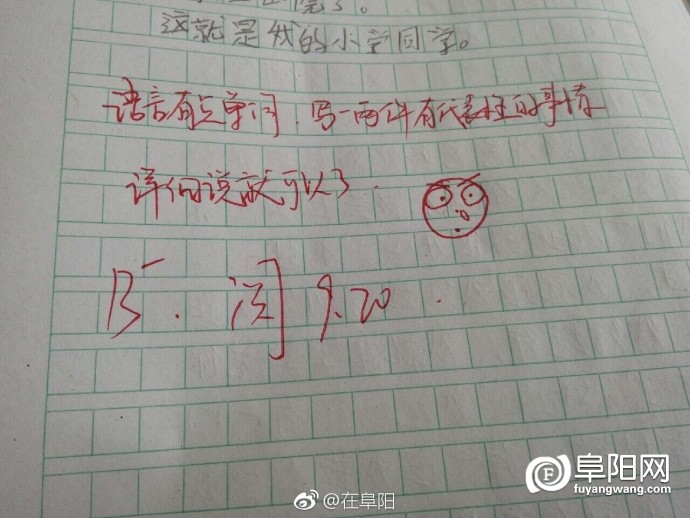 完了。
这就是我的小学同学。
语言有点单调,写一两件有代表性的事情
详细说就可以了.
B⁻. 阅 9.20.
@在阜阳
阜阳网
fuyangwang.com